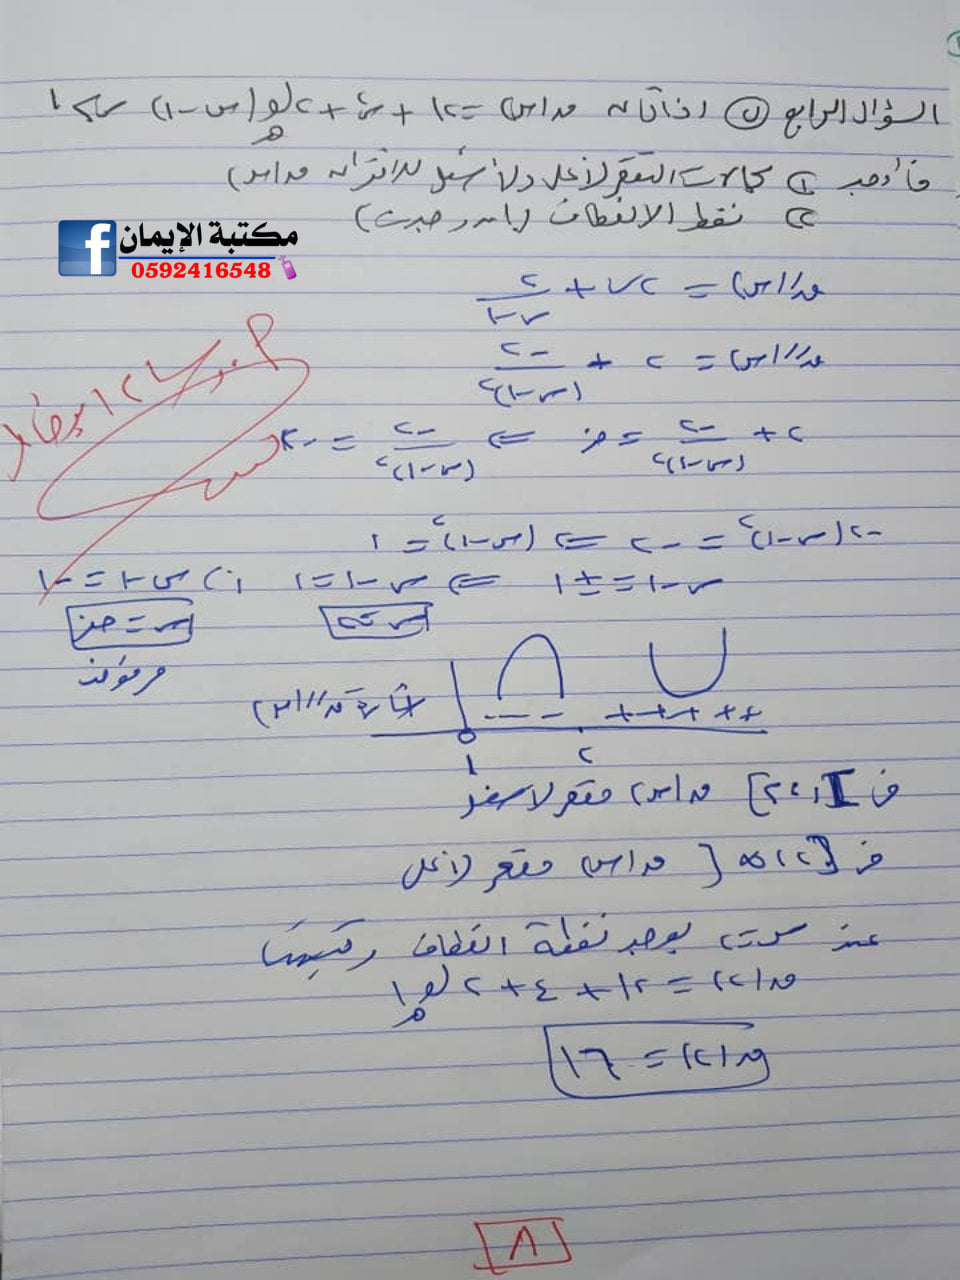 السؤال الرابع ب) إذا كان ق(س) = ١٢ + س٢ + ٢ لو_هـ(س-١) س > ١
فأوجد ١) مجالات التقعر لأعلى ولأسفل للاقتران ق(س)
٢) نقط الانعطاف (إن وجدت)
مكتبة الإيمان
0592416548
ق/(س) = ٢س + ٢/(س-١)
ق//(س) = ٢ + -٢/(س-١)٢
٢ + -٢/(س-١)٢ = صفر ⇐ -٢/(س-١)٢ = -٢
-٢(س-١)٢ = -٢ ⇐ (س-١)٢ = ١
س-١ = ±١ ⇐ س-١ = ١ ، س-١ = -١
س=٢ س=صفر
مرفوض
إشارة ق//(س) --- +++++
١ ٢
في [١،٢] ق(س) مقعر لأسفل
في [٢،∞[ ق(س) مقعر لأعلى
عند س=٢ يوجد نقطة انعطاف وقيمتها
ق(٢) = ١٢ + ٤ + ٢ لو_هـ ١
ق(٢) = ١٦
٨